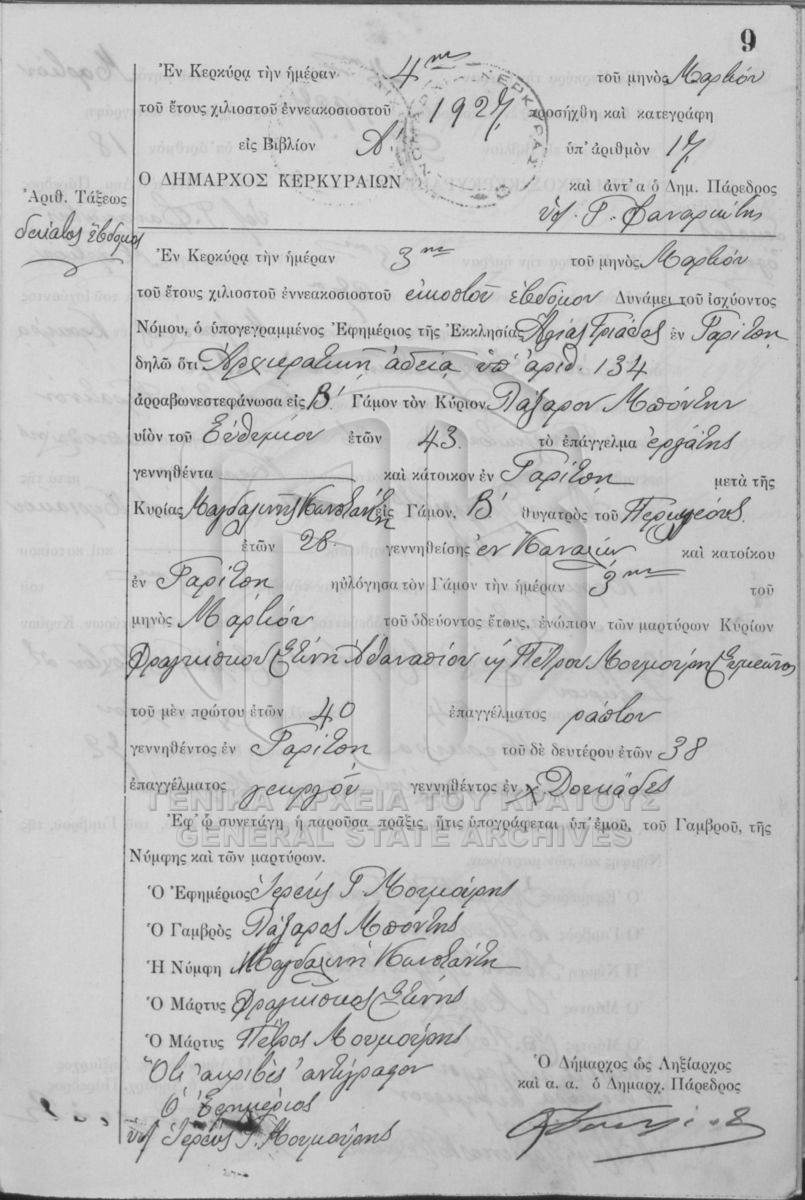 9
Ἐν Κερκύρᾳ τὴν ἡμέραν 4ην τοῦ μηνὸς Μαρτίου
τοῦ ἔτους χιλιοστοῦ ἐννεακοσιοστοῦ 1927 προσήχθη καὶ κατεγράφη
εἰς Βιβλίον Α' ὑπ' ἀριθμὸν 17
Ο ΔΗΜΑΡΧΟΣ ΚΕΡΚΥΡΑΙΩΝ καὶ ἀντ' α ὁ Δημ. Πάρεδρος
Ἀριθ. Τάξεως
δέκατος ἕβδομος
Ἐν Κερκύρᾳ τὴν ἡμέραν 3ην τοῦ μηνὸς Μαρτίου
τοῦ ἔτους χιλιοστοῦ ἐννεακοσιοστοῦ εἰκοστοῦ ἑβδόμου Δυνάμει τοῦ ἰσχύοντος
Νόμου, ὁ ὑπογεγραμμένος Ἐφημέριος τῆς Ἐκκλησίας Ἁγίας Τριάδος ἐν Γαρίτσῃ
δηλῶ ὅτι Ἀρχιερατικῇ ἀδείᾳ ὑπ' ἀριθ. 134
ἀρραβωνεστεφάνωσα εἰς Β' Γάμον τὸν Κύριον Λάζαρον Μπόντην
υἱὸν τοῦ Εὐθυμίου ἐτῶν 43 τὸ ἐπάγγελμα ἐργάτης
γεννηθέντα καὶ κάτοικον ἐν Γαρίτσῃ μετὰ τῆς
Κυρίας Μαγδαληνῆς Κωστάντη εἰς Γάμον, Β' θυγατρὸς τοῦ
ἐτῶν 28 γεννηθείσης ἐν καὶ κατοίκου
ἐν Γαρίτσῃ ηὐλόγησα τὸν Γάμον τὴν ἡμέραν 3ην τοῦ
μηνὸς Μαρτίου τοῦ ὁδεύοντος ἔτους, ἐνώπιον τῶν μαρτύρων Κυρίων
Φραγκίσκου Ξένη Ἀθανασίου ϗ Πέτρου Μουμούρη Συμεῶνος
τοῦ μὲν πρώτου ἐτῶν 40 ἐπαγγέλματος ράπτου
γεννηθέντος ἐν Γαρίτσῃ τοῦ δὲ δευτέρου ἐτῶν 38
ἐπαγγέλματος γεωργοῦ γεννηθέντος ἐν Δουκάδες
ΓΕΝΙΚΑ ΑΡΧΕΙΑ ΤΟΥ ΚΡΑΤΟΥΣ
GENERAL STATE ARCHIVES
Ἐφ' ᾧ συνετάγη ἡ παροῦσα πρᾶξις ἥτις ὑπογράφεται ὑπ' ἐμοῦ, τοῦ Γαμβροῦ, τῆς
Νύμφης καὶ τῶν μαρτύρων.
Ὁ Ἐφημέριος Ἱερεὺς Γ Μουμούρης
Ὁ Γαμβρὸς Λάζαρος Μπόντης
Ἡ Νύμφη Μαγδαληνὴ Κωστάντη
Ὁ Μάρτυς Φραγκίσκος Ξένης
Ὁ Μάρτυς Πέτρος Μουμούρης
Ὅτι ἀκριβὲς ἀντίγραφον
Ὁ Ἐφημέριος
ὑπ Ἱερεὺς Γ. Μουμούρης
Ὁ Δήμαρχος ὡς Ληξίαρχος
καὶ α. α. ὁ Δημαρχ. Πάρεδρος